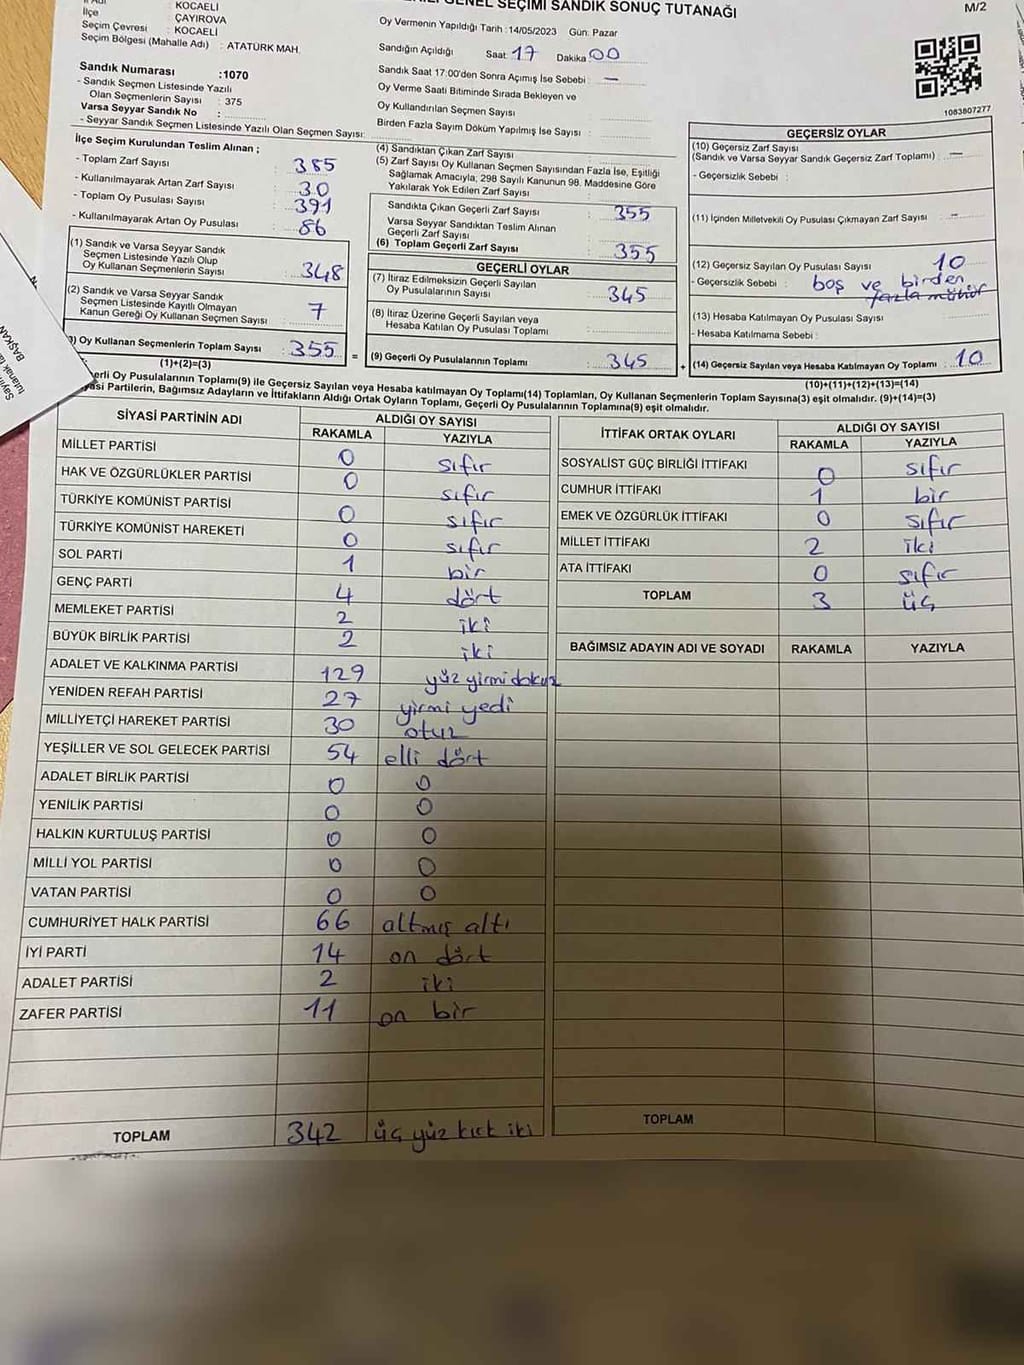 GENEL SEÇİMİ SANDIK SONUÇ TUTANAĞI
M/2
İl Adı : KOCAELİ
İlçe : ÇAYIROVA
Seçim Çevresi : KOCAELİ
Seçim Bölgesi (Mahalle Adı) : ATATÜRK MAH.
Oy Vermenin Yapıldığı Tarih :14/05/2023 Gün: Pazar
Sandığın Açıldığı Saat 17 Dakika 00
Sandık Saat 17:00'den Sonra Açımış İse Sebebi : —
Oy Verme Saati Bitiminde Sırada Bekleyen ve
Oy Kullandırılan Seçmen Sayısı :
Birden Fazla Sayım Döküm Yapılmış İse Sayısı :
Sandık Numarası :1070
- Sandık Seçmen Listesinde Yazılı
Olan Seçmenlerin Sayısı : 375
Varsa Seyyar Sandık No :
- Seyyar Sandık Seçmen Listesinde Yazılı Olan Seçmen Sayısı:
1083807277
İlçe Seçim Kurulundan Teslim Alınan ;
- Toplam Zarf Sayısı : 385
- Kullanılmayarak Artan Zarf Sayısı : 30
- Toplam Oy Pusulası Sayısı : 391
- Kullanılmayarak Artan Oy Pusulası : 86
(1) Sandık ve Varsa Seyyar Sandık
Seçmen Listesinde Yazılı Olup
Oy Kullanan Seçmenlerin Sayısı : 348
(2) Sandık ve Varsa Seyyar Sandık
Seçmen Listesinde Kayıtlı Olmayan
Kanun Gereği Oy Kullanan Seçmen Sayısı : 7
) Oy Kullanan Seçmenlerin Toplam Sayısı : 355 =
(1)+(2)=(3)
(4) Sandıktan Çıkan Zarf Sayısı :
(5) Zarf Sayısı Oy Kullanan Seçmen Sayısından Fazla İse, Eşitliği
Sağlamak Amacıyla, 298 Sayılı Kanunun 98. Maddesine Göre
Yakılarak Yok Edilen Zarf Sayısı :
Sandıkta Çıkan Geçerli Zarf Sayısı : 355
Varsa Seyyar Sandıktan Teslim Alınan
Geçerli Zarf Sayısı :
(6) Toplam Geçerli Zarf Sayısı : 355
GEÇERLİ OYLAR
(7) İtiraz Edilmeksizin Geçerli Sayılan
Oy Pusulalarının Sayısı : 345
(8) İtiraz Üzerine Geçerli Sayılan veya
Hesaba Katılan Oy Pusulası Toplamı :
(9) Geçerli Oy Pusulalarının Toplamı : 345 +
GEÇERSİZ OYLAR
(10) Geçersiz Zarf Sayısı
(Sandık ve Varsa Seyyar Sandık Geçersiz Zarf Toplamı) : —
- Geçersizlik Sebebi :
(11) İçinden Milletvekili Oy Pusulası Çıkmayan Zarf Sayısı : -
(12) Geçersiz Sayılan Oy Pusulası Sayısı : 10
- Geçersizlik Sebebi : boş ve birden
fazla mühür
(13) Hesaba Katılmayan Oy Pusulası Sayısı :
- Hesaba Katılmama Sebebi :
(14) Geçersiz Sayılan veya Hesaba Katılmayan Oy Toplamı : 10
(10)+(11)+(12)+(13)=(14)
erli Oy Pusulalarının Toplamı(9) ile Geçersiz Sayılan veya Hesaba katılmayan Oy Toplamı(14) Toplamları, Oy Kullanan Seçmenlerin Toplam Sayısına(3) eşit olmalıdır. (9)+(14)=(3)
yasi Partilerin, Bağımsız Adayların ve İttifakların Aldığı Ortak Oyların Toplamı, Geçerli Oy Pusulalarının Toplamına(9) eşit olmalıdır.
SİYASİ PARTİNİN ADI
ALDIĞI OY SAYISI
RAKAMLA YAZIYLA
MİLLET PARTİSİ 0 sıfır
HAK VE ÖZGÜRLÜKLER PARTİSİ 0 sıfır
TÜRKİYE KOMÜNİST PARTİSİ 0 sıfır
TÜRKİYE KOMÜNİST HAREKETİ 0 sıfır
SOL PARTİ 1 bir
GENÇ PARTİ 4 dört
MEMLEKET PARTİSİ 2 iki
BÜYÜK BİRLİK PARTİSİ 2 iki
ADALET VE KALKINMA PARTİSİ 129 yüz yirmi dokuz
YENİDEN REFAH PARTİSİ 27 yirmi yedi
MİLLİYETÇİ HAREKET PARTİSİ 30 otuz
YEŞİLLER VE SOL GELECEK PARTİSİ 54 elli dört
ADALET BİRLİK PARTİSİ 0 0
YENİLİK PARTİSİ 0 0
HALKIN KURTULUŞ PARTİSİ 0 0
MİLLİ YOL PARTİSİ 0 0
VATAN PARTİSİ 0 0
CUMHURİYET HALK PARTİSİ 66 altmış altı
İYİ PARTİ 14 on dört
ADALET PARTİSİ 2 iki
ZAFER PARTİSİ 11 on bir
TOPLAM 342 üç yüz kırk iki
İTTİFAK ORTAK OYLARI
ALDIĞI OY SAYISI
RAKAMLA YAZIYLA
SOSYALİST GÜÇ BİRLİĞİ İTTİFAKI 0 sıfır
CUMHUR İTTİFAKI 1 bir
EMEK VE ÖZGÜRLÜK İTTİFAKI 0 sıfır
MİLLET İTTİFAKI 2 iki
ATA İTTİFAKI 0 sıfır
TOPLAM 3 üç
BAĞIMSIZ ADAYIN ADI VE SOYADI RAKAMLA YAZIYLA
TOPLAM
BAŞKAN